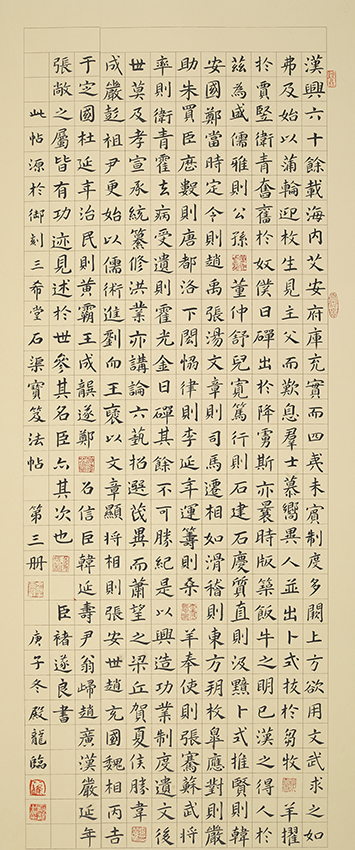 漢興六十餘載海內乂安府庫充實而四夷未賓制度多闕上方欲用文武求之如
弗及始以蒲輪迎枚生見主父而歎息羣士慕嚮異人並出卜式拔於芻牧羊擢
於賈豎衛青奮舊於奴僕日磾出於降虜斯亦曩時版築飯牛之明已漢之得人於
茲為盛儒雅則公孫董仲舒兒寬篤行則石建石慶質直則汲黯卜式推賢則韓
安國鄭當時定令則趙禹張湯文章則司馬遷相如滑稽則東方朔枚皋應對則嚴
助朱買臣歷數則唐都洛下閎協律則李延年運籌則桑羊奉使則張騫蘇武將
率則衛青霍去病受遺則霍光金日磾其餘不可勝紀是以興造功業制度遺文後
世莫及孝宣承統纂修洪業亦講論六藝招選茂異而蕭望之梁丘賀夏侯勝韋
成嚴彭祖尹更始以儒術進劉向王襃以文章顯將相則張安世趙充國魏相丙吉
于定國杜延年治民則黃霸王成龔遂鄭召信臣韓延壽尹翁歸趙廣漢嚴延年
張敞之屬皆有功迹見述於世參其名臣亦其次也 臣褚遂良書
此帖源於御刻三希堂石渠寶笈法帖 第三册 庚子冬殿龍臨